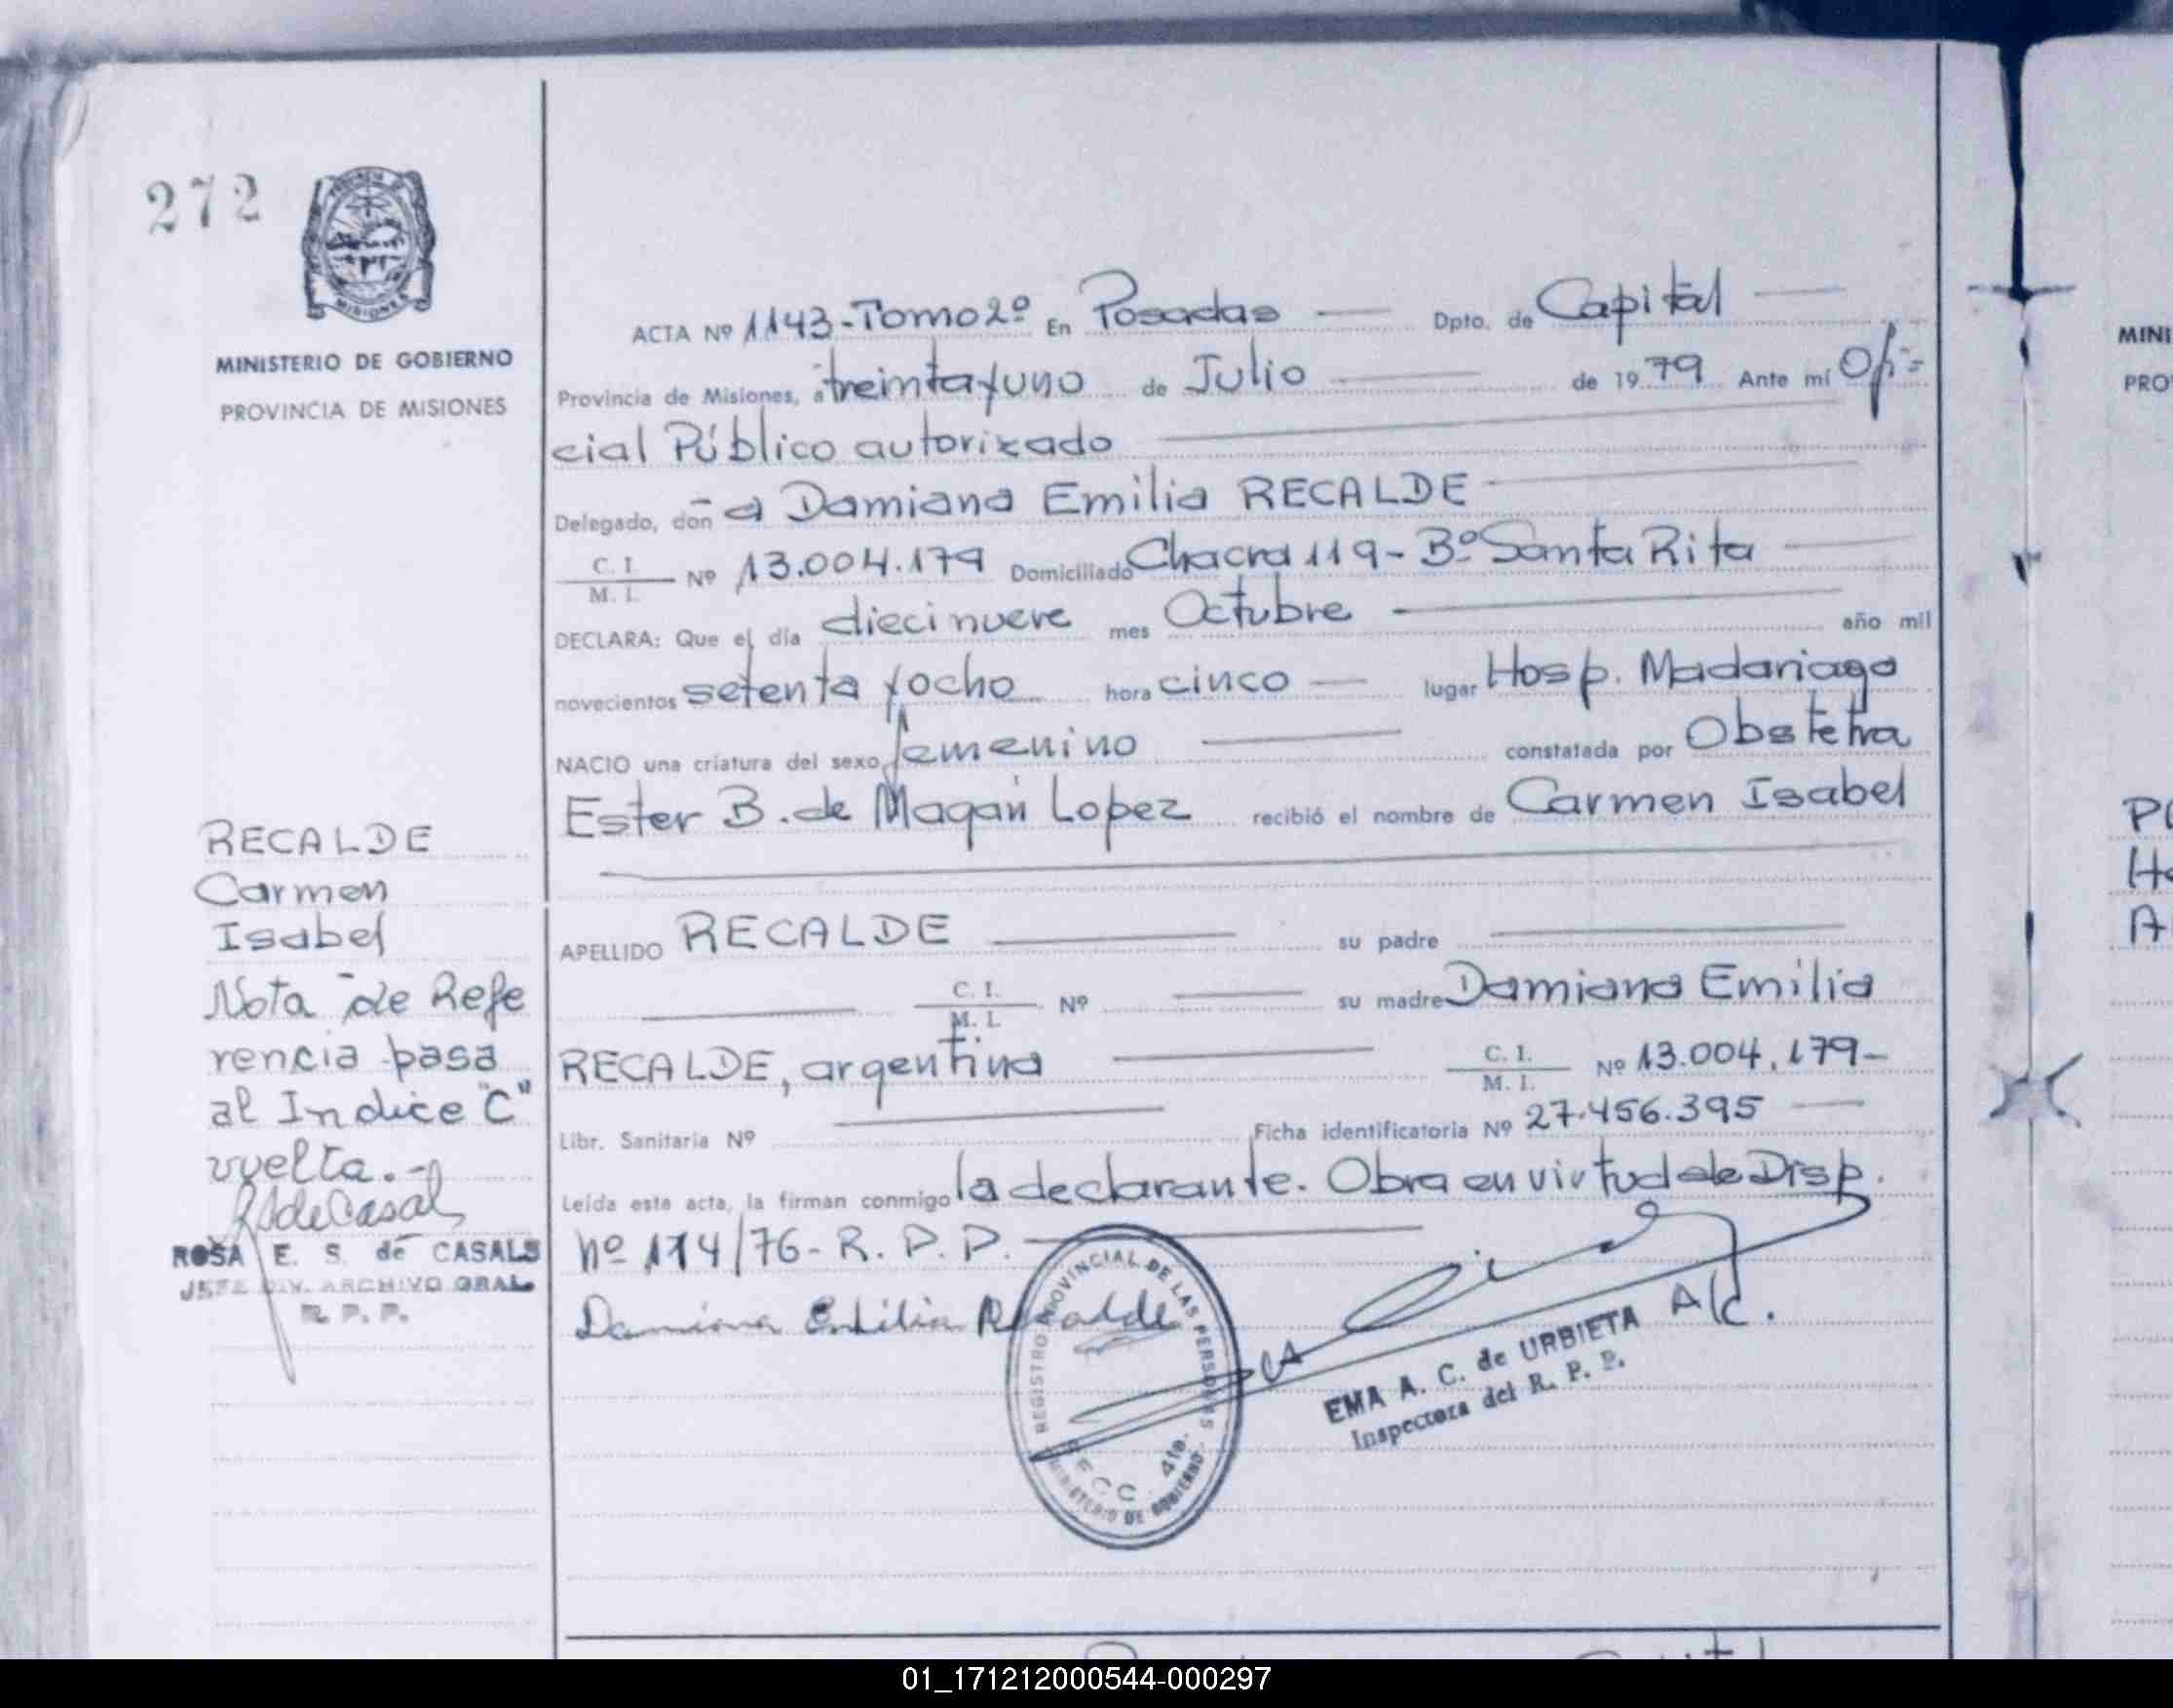 272
PROVINCIA DE
MISIONES
MINISTERIO DE GOBIERNO
PROVINCIA DE MISIONES
ACTA Nº 1143-Tomo 2º En Posadas Dpto. de Capital
Provincia de Misiones, a treinta y uno de Julio de 1979 Ante mí Ofi=
cial Público autorizado
Delegado, don̄ a Damiana Emilia RECALDE
C. I.
M. I. Nº 13.004.179 Domiciliado Chacra 119- Bº Santa Rita
DECLARA: Que el día diecinueve mes Octubre año mil
novecientos setenta y ocho hora cinco lugar Hosp. Madariaga
NACIO una criatura del sexo femenino constatada por Obstetra
Ester B. de Magan Lopez recibió el nombre de Carmen Isabel
APELLIDO RECALDE su padre
C. I.
M. I. Nº su madre Damiana Emilia
RECALDE, argentina C. I.
M. I. Nº 13.004.179-
Libr. Sanitaria Nº Ficha identificatoria Nº 27.456.395
Leída esta acta, la firman conmigo la declarante. Obra en virtud de Disp.
nº 114/76- R. P. P.
Damiana Emilia Recalde
REGISTRO PROVINCIAL DE LAS PERSONAS
SECC. 4ta.
MINISTERIO DE GOBIERNO
A/C.
EMA A. C. de URBIETA
Inspectora del R. P. P.
RECALDE
Carmen
Isabel
Nota de Refe
rencia pasa
al Indice "C"
vuelta.-
RSdeCasals
ROSA E. S. de CASALS
JEFE DIV. ARCHIVO GRAL.
R. P. P.
MINI
PRO
H
A
01_171212000544-000297